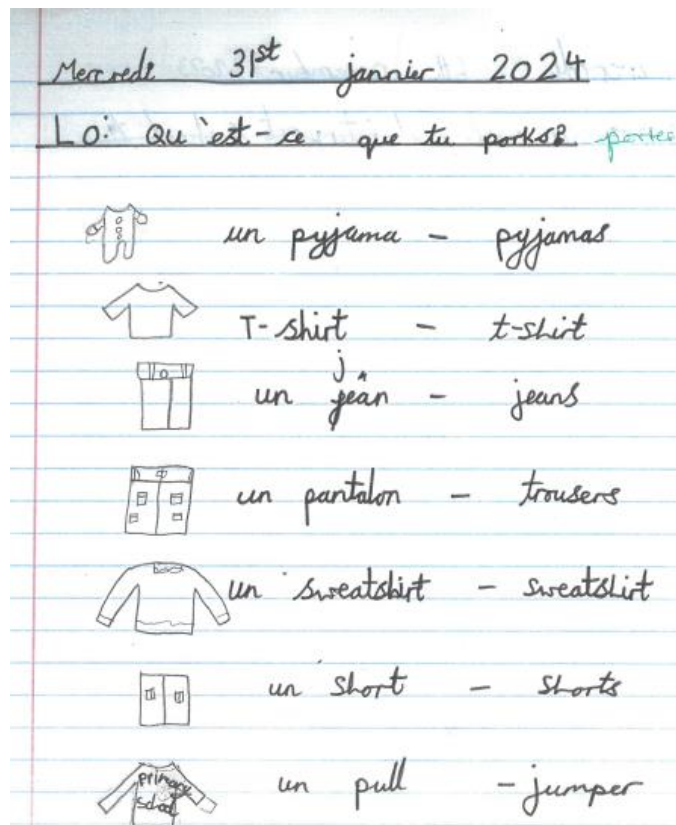 Mercredi 31st jannier 2024
Lo: Qu'est-ce que tu porksB portes
un pyjama - pyjamas
T-shirt - t-shirt
j
un jeân - jeans
un pantalon - trousers
un sweatshirt - sweatshirt
un short - shorts
primary
school
un pull - jumper